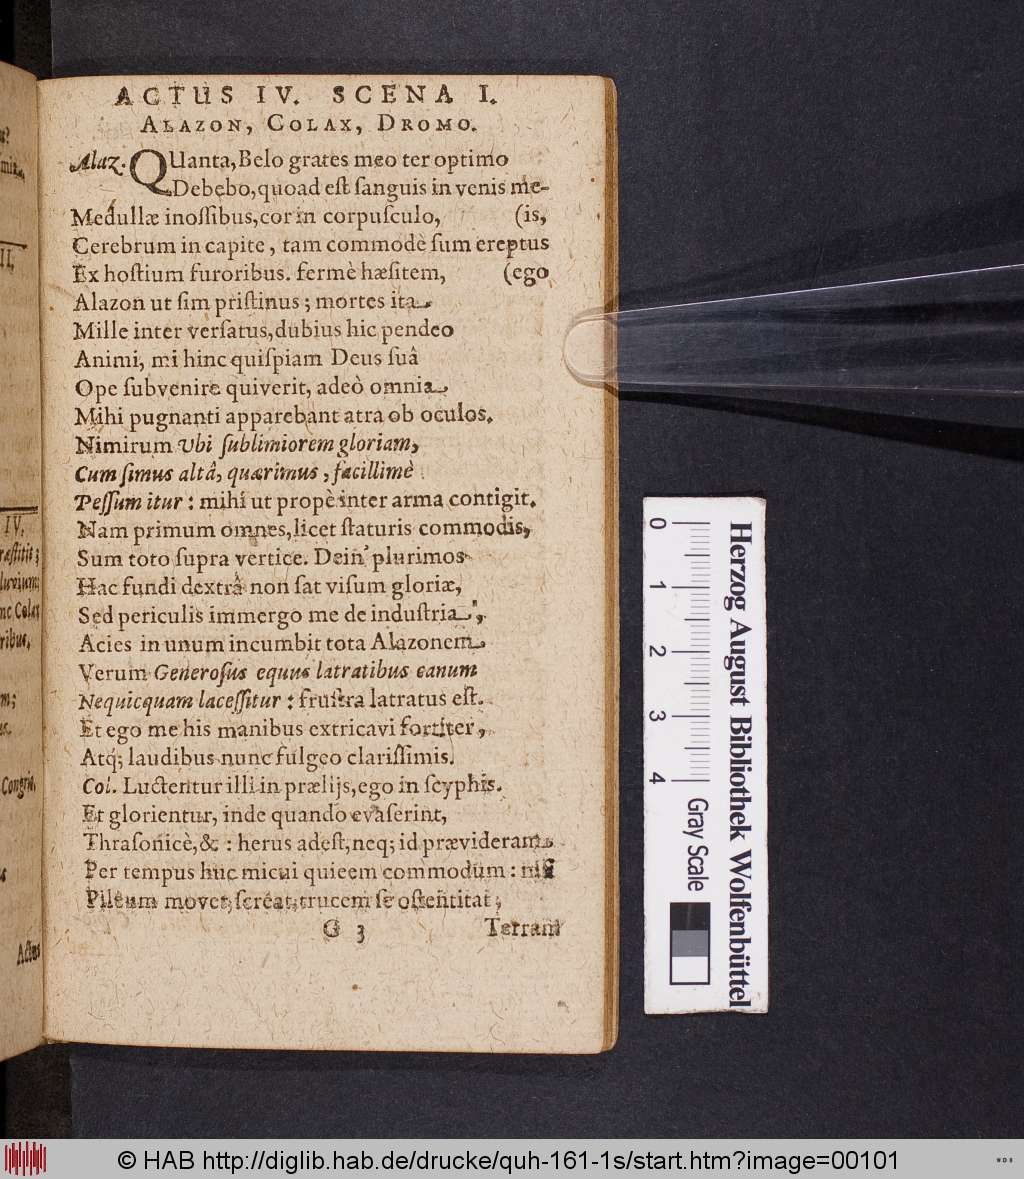 ACTUS IV. SCENA I.
ALAZON, COLAX, DROMO.
Alaz. QUanta, Belo grates meo ter optimo
Debebo, quoad eſt ſanguis in venis me-
Medullæ inoſſibus, cor in corpuſculo, (is,
Cerebrum in capite, tam commodè ſum ereptus
Ex hoſtium furoribus. fermè hæſitem, (ego
Alazon ut ſim priſtinus; mortes ita
Mille inter verſatus, dubius hic pendeo
Animi, mi hinc quiſpiam Deus ſuâ
Ope ſubvenire quiverit, adeò omnia
Mihi pugnanti apparebant atra ob oculos.
Nimirum Ubi ſublimiorem gloriam,
Cum ſimus altâ, quærimus, facillimè
Peſſum itur: mihi ut propè inter arma contigit.
Nam primum omnes, licet ſtaturis commodis,
Sum toto ſupra vertice. Dein' plurimos
Hac fundi dextrâ non ſat viſum gloriæ,
Sed periculis immergo me de induſtria,
Acies in unum incumbit tota Alazonem
Verum Generoſus equus latratibus canum
Nequicquam laceſſitur: fruſtra latratus eſt.
Et ego me his manibus extricavi fortiter,
Atq; laudibus nunc fulgeo clariſſimis.
Col. Luctentur illi in prælijs, ego in ſcyphis.
Et glorientur, inde quando evaſerint,
Thraſonicè, & : herus adeſt, neq; id prævideram
Per tempus huc micui quieem commodum: niſi
Pileum movet, ſcreat, trucem ſe oſtentitat;
G 3 Terram
II.
IV.
ræſtitit;
nc Colax
ribus,
Congrio,
Actus
0 1 2 3 4
Gray Scale
Herzog August Bibliothek Wolfenbüttel
© HAB http://diglib.hab.de/drucke/quh-161-1s/start.htm?image=00101